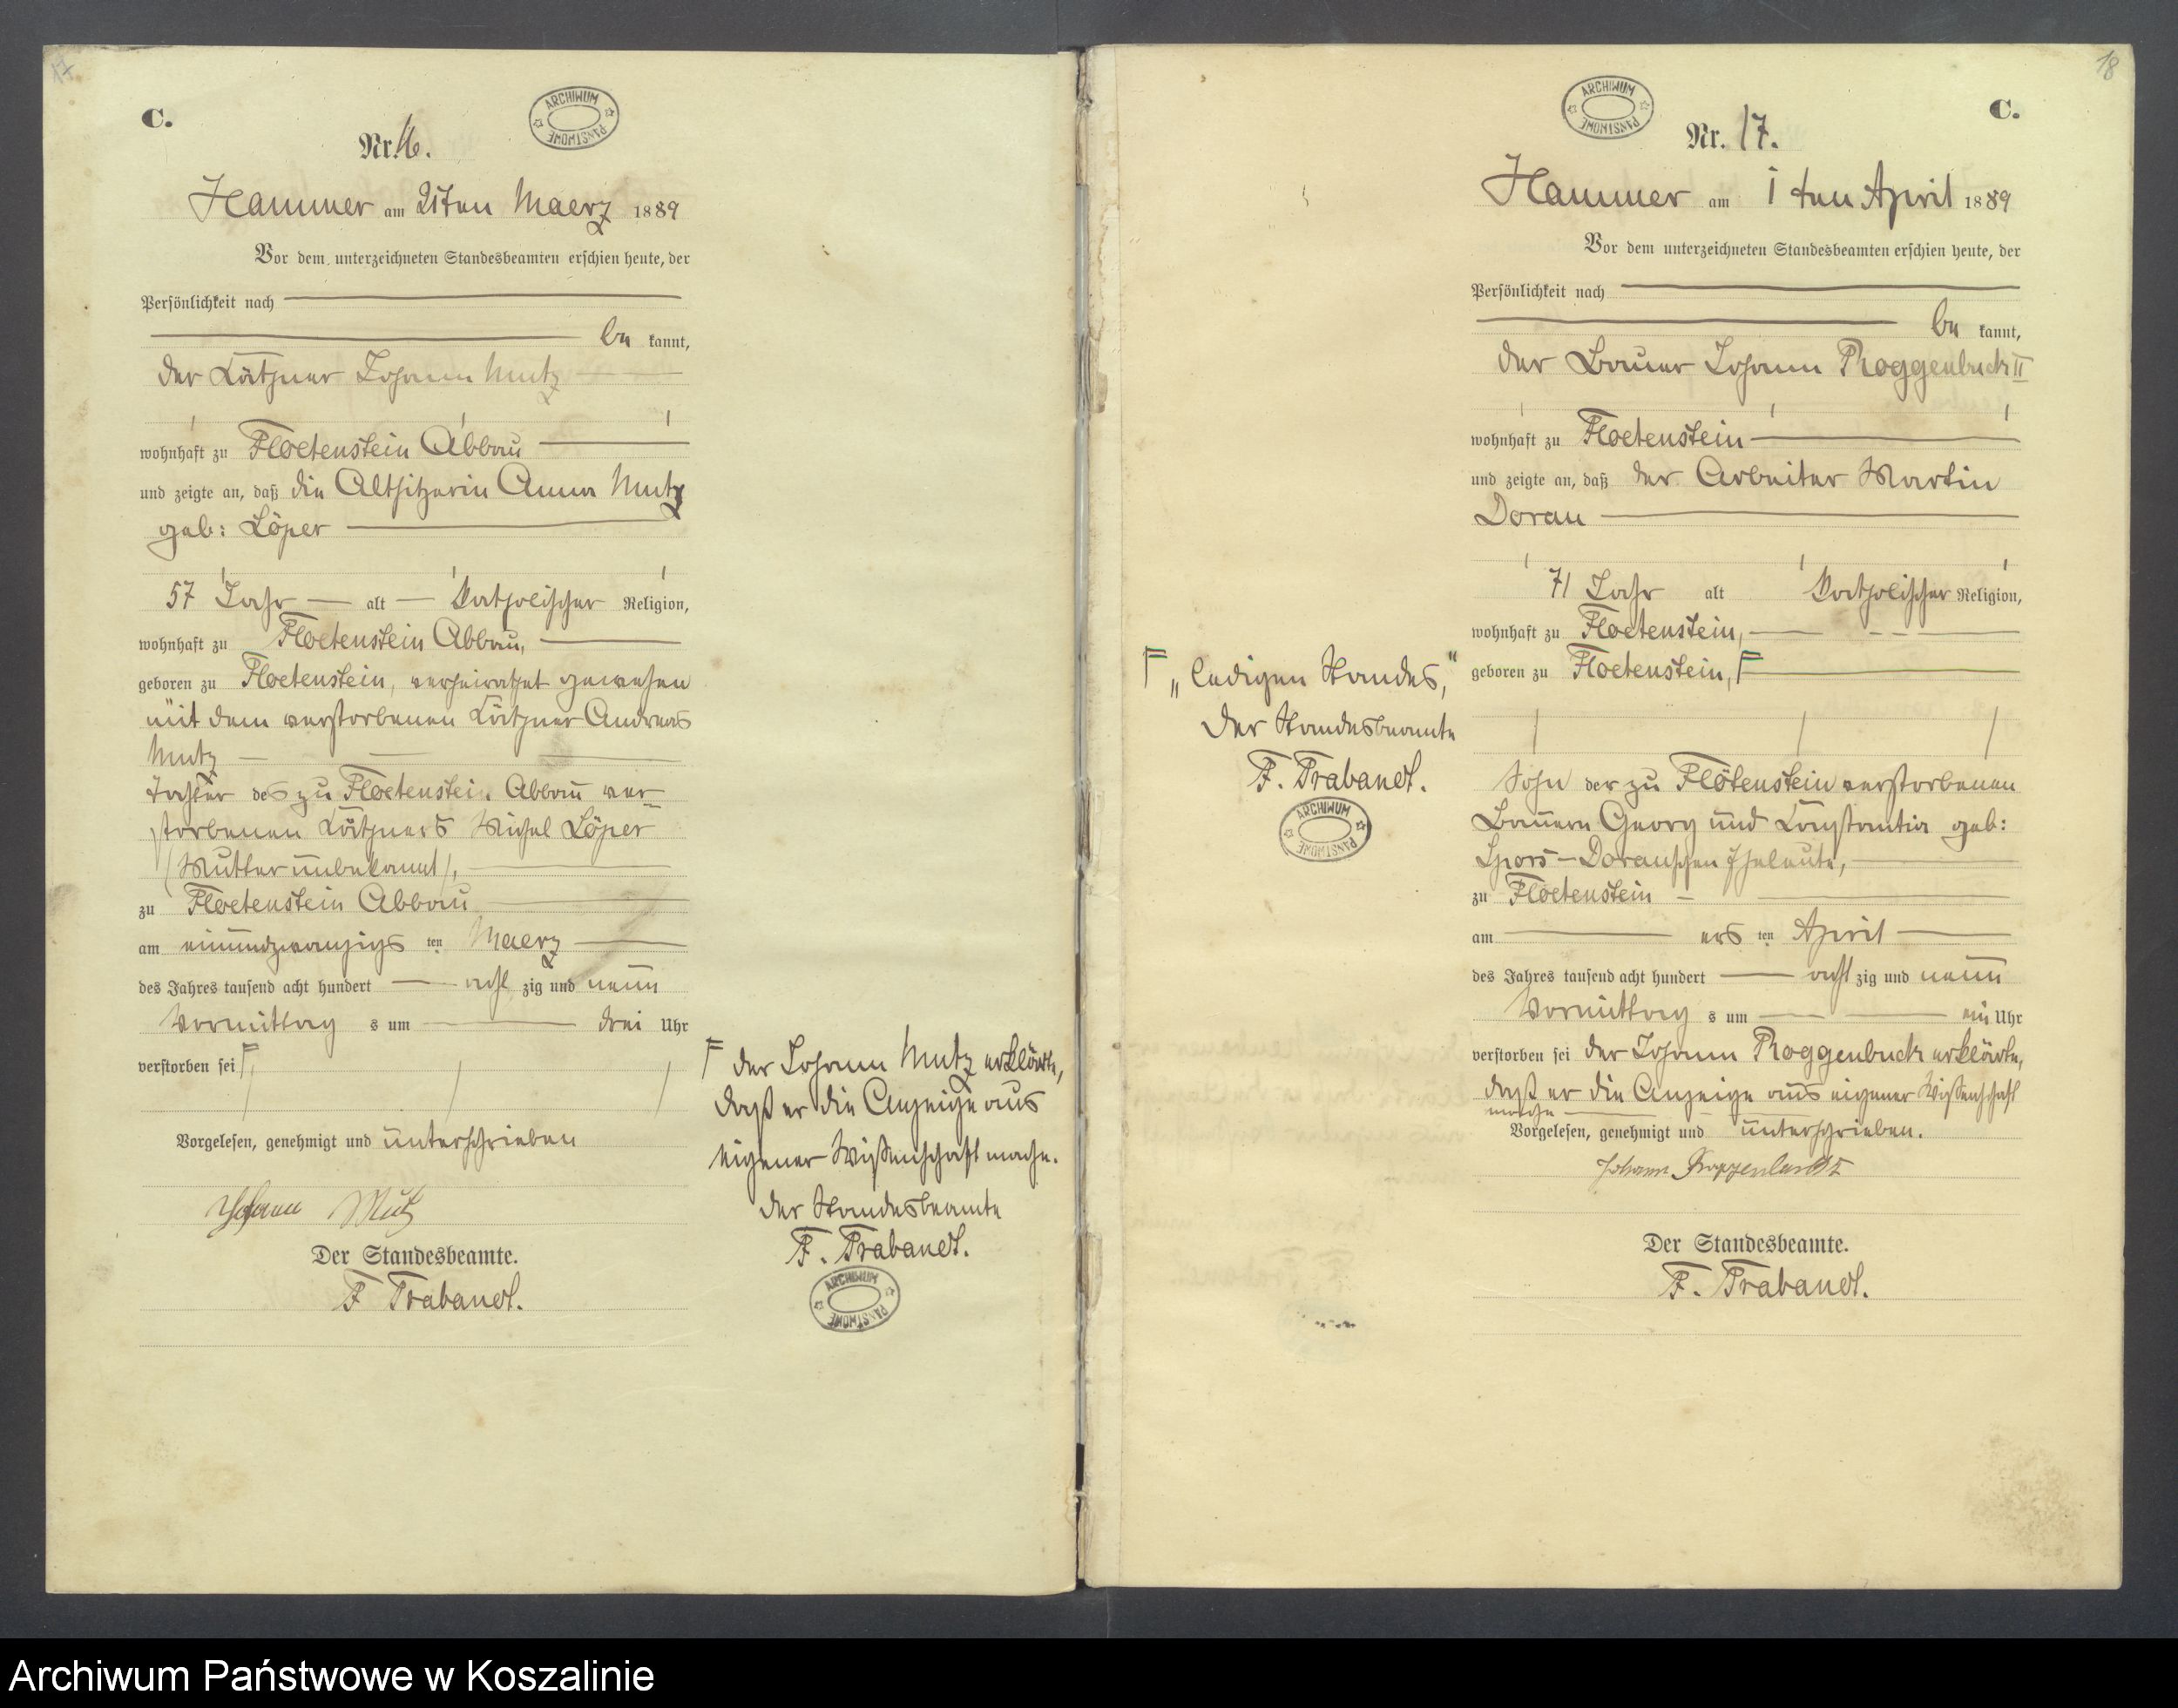 17
C.
ARCHIWUM PANSTWOWE
Nr. 16.
Hammer am 21ten Maerz 1889
Vor dem unterzeichneten Standesbeamten erschien heute, der
Persönlichkeit nach
be kannt,
der Kätner Johann Mutz
wohnhaft zu Floetenstein Abbau
und zeigte an, daß die Altsitzerin Anna Mutz
geb: Löper
57 Jahr alt katholischer Religion,
wohnhaft zu Floetenstein Abbau,
geboren zu Floetenstein, verheirathet gewesen
mit dem verstorbenen Käthner Andreas
Mutz
Tochter des zu Floetenstein Abbau ver-
storbenen Käthners Michel Löper
(Mutter unbekannt),
zu Floetenstein Abbau
am einundzwanzigs ten Maerz
des Jahres tausend acht hundert acht zig und neun
Vormittag s um drei Uhr
verstorben sei F,
Vorgelesen, genehmigt und unterschrieben
Johann Mutz
Der Standesbeamte.
F Trabandt.
F der Johann Mutz erklärte,
daß er die Anzeige aus
eigener Wißenschaft mache.
der Standesbeamte
F. Trabandt.
ARCHIWUM PANSTWOWE
18
C.
ARCHIWUM PANSTWOWE
Nr. 17.
Hammer am 1 ten April 1889
Vor dem unterzeichneten Standesbeamten erschien heute, der
Persönlichkeit nach
be kannt,
der Bauer Johann Roggenbuck II
wohnhaft zu Floetenstein
und zeigte an, daß der Arbeiter Martin
Dorau
71 Jahr alt katholischer Religion,
wohnhaft zu Floetenstein,
geboren zu Floetenstein, F
F „ledigen Standes,"
der Standesbeamte
F. Trabandt.
ARCHIWUM PANSTWOWE
Sohn der zu Flötenstein verstorbenen
Bauern Georg und Constantia geb:
Spors-Dorauschen Eheleute,
zu Floetenstein
am ers ten April
des Jahres tausend acht hundert acht zig und neun
Vormittag s um ein Uhr
verstorben sei der Johann Roggenbuck erklärte,
daß er die Anzeige aus eigener Wißenschaft
mache
Vorgelesen, genehmigt und unterschrieben.
Johann Roggenbuck
Der Standesbeamte.
F. Trabandt.
Archiwum Państwowe w Koszalinie